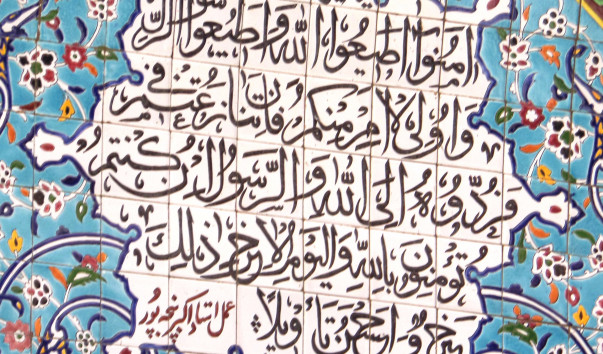 امَنُوا اَطيعُوا اللهَ وَ اَطيعُوا الرَّسُو
وَ اُولِى الاَمرِ مِنكُم فَاِن تَنازَعتُم فى
فَرُدُّوهُ اِلَى اللهِ وَ الرَّسُولِ اِن كُنتُم
تُؤمِنُونَ بِاللهِ وَ اليَومِ الاخِرِ ذلِكَ
خَيرٌ وَ اَحسَنُ تَأويلاً
عمل استاد اکبر پنجه پور